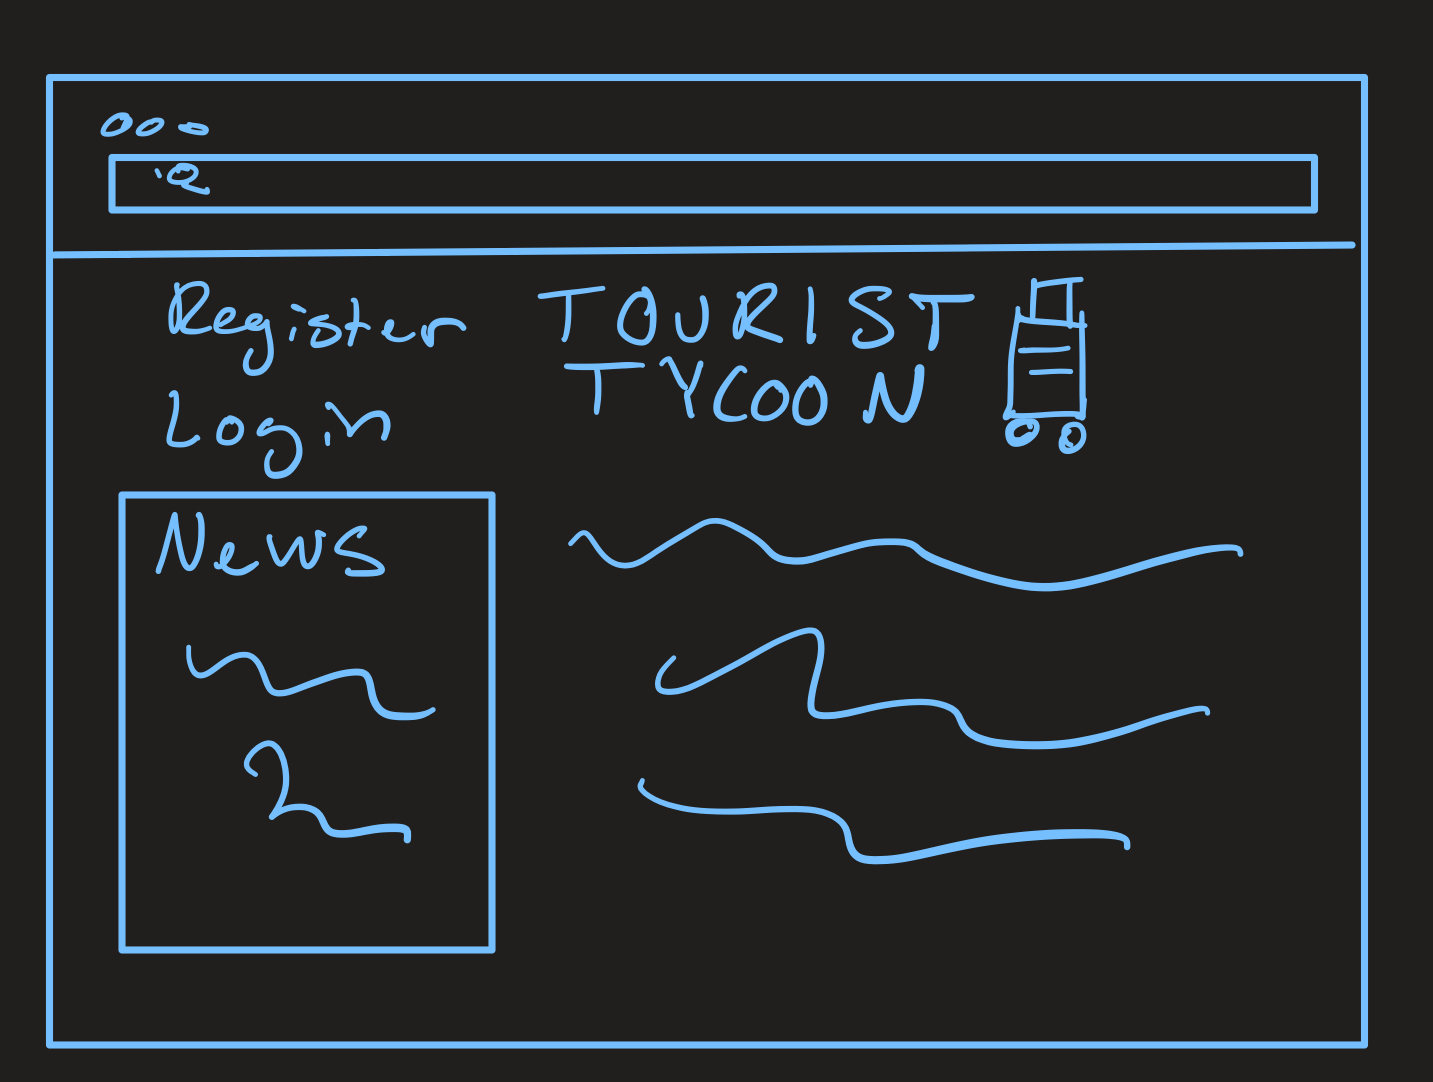 Register
Login
TOURIST
TYCOON
News